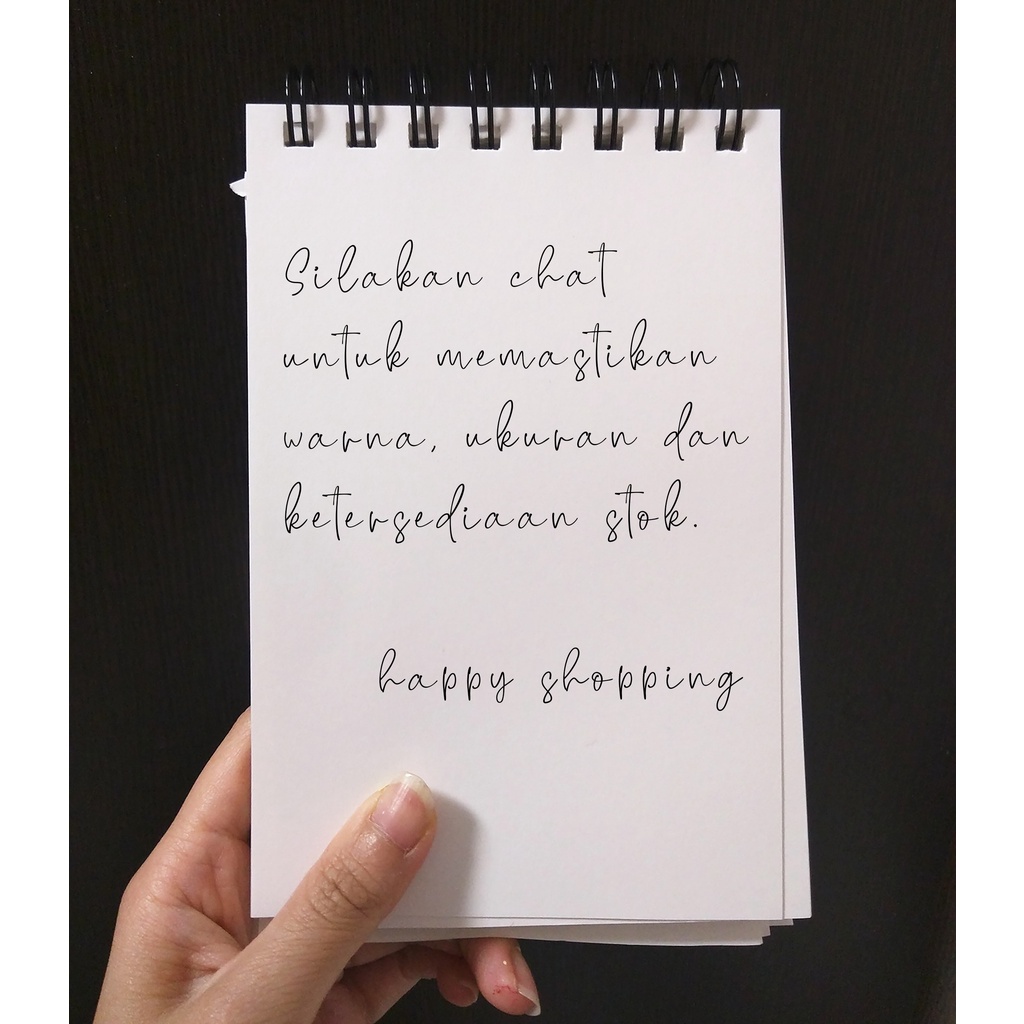 Silakan chat
untuk memastikan
warna, ukuran dan
ketersediaan stok.
happy shopping